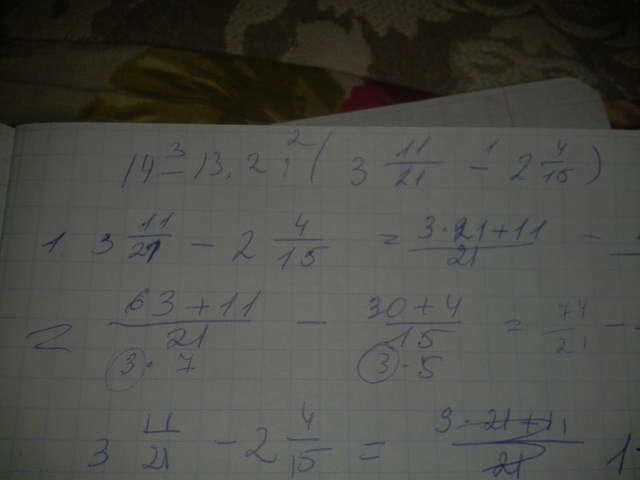 14 - 13,2 : ( 3 11/21 - 2 4/15 )
3 2 1
1. 3 11/21 - 2 4/15 = 3·21+11/21 -
= 63+11/21 - 30+4/15 = 74/21 -
3·7 3·5
3 11/21 - 2 4/15 = 3·21+11/21